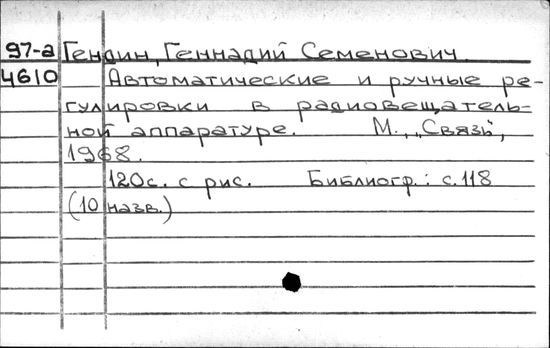 97-а Гендин, Геннадий Семенович.
4610 Автоматические и ручные ре-
гулировки в радиовещатель-
ной аппаратуре. М., „Связь",
1968.
120с. с рис. Библиогр.: с.118
(10 назв.)